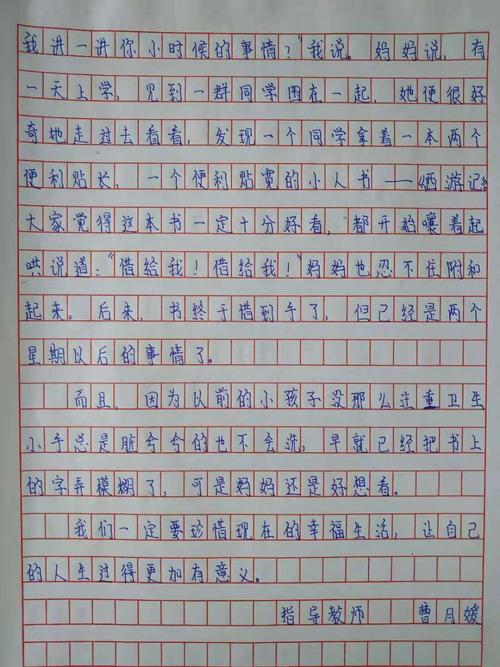 我讲一讲你小时候的事情？”我说。妈妈说，有
一天上学，见到一群同学围在一起，她便很好
奇地走过去看看，发现一个同学拿着一本两个
便利贴长，一个便利贴宽的小人书——《西游记》
大家觉得这本书一定十分好看，都开始嚷着起
哄说道：“借给我！借给我！”妈妈也忍不住附和
起来。后来，书终于借到手了，但已经是两个
星期以后的事情了。
而且，因为以前的小孩子没那么注重卫生
小手总是脏兮兮的也不会洗，早就已经把书上
的字弄模糊了，可是妈妈还是好想看。
我们一定要珍惜现在的幸福生活，让自己
的人生过得更加有意义。
指导教师 曹月媛